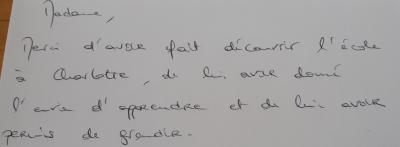 Madame,
Merci d'avoir fait découvrir l'école
à Charlotte, de lui avoir donné
l'envie d'apprendre et de lui avoir
permis de grandir.